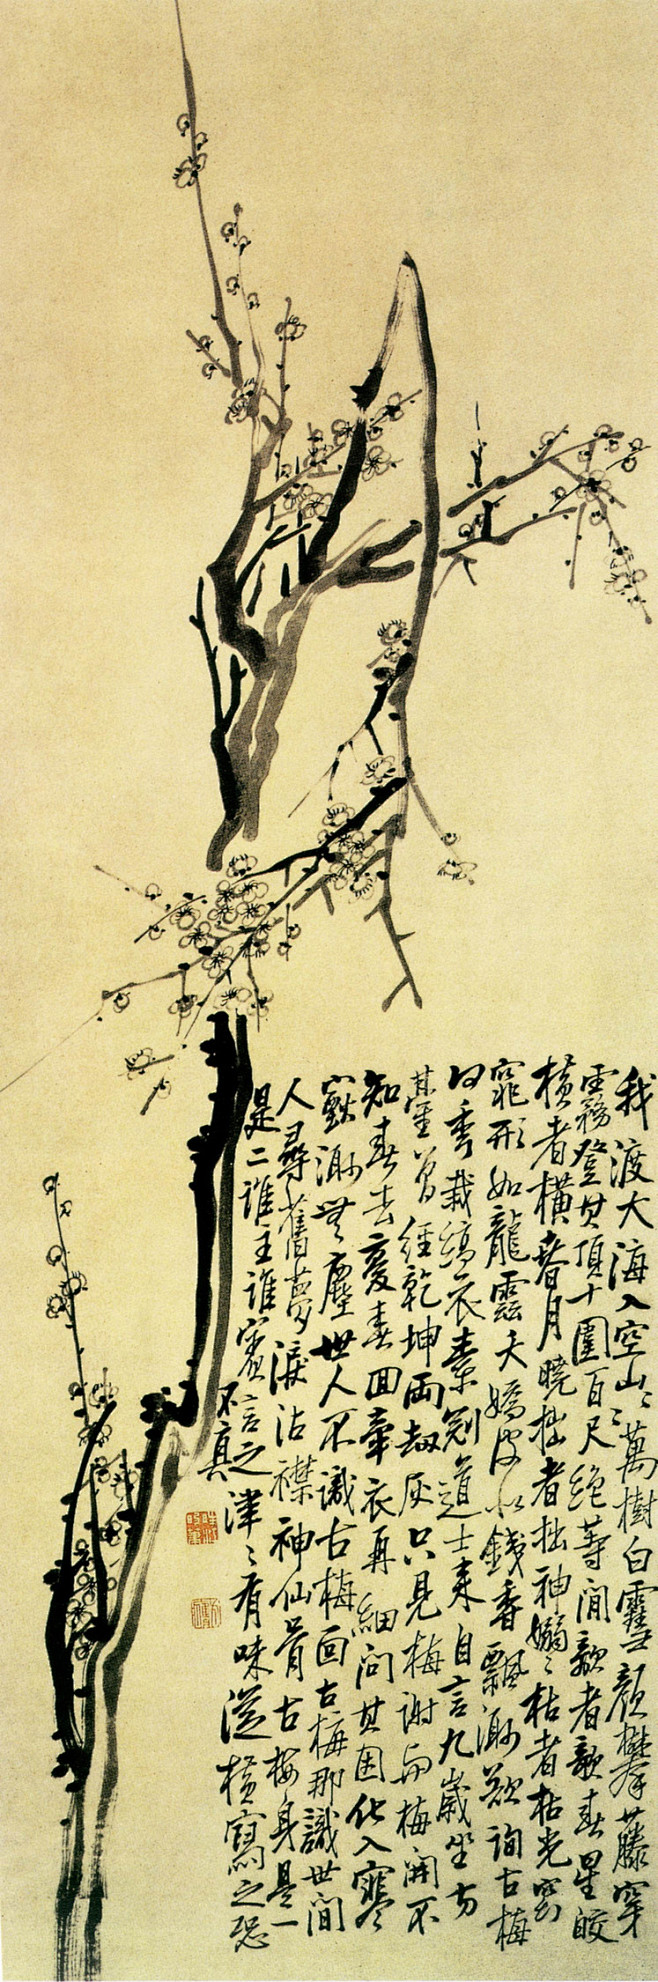 我渡大海入空山〻萬樹白雲顏攀藤穿
霧登其頂十圍百尺絕等閒欹者欹春星皎
橫者橫春月曉拙者拙神嫋〻枯者枯光窈
窕形如龍靈夭嬌皮如錢香飄渺欲詢古梅
何季栽縞衣素冠道士来自言九歲坐方
臺曾經乾坤兩劫灰只見梅謝而梅開不
知春去慶春回牽衣再細問其因化入寥
寂渺無塵世人不識古梅面古梅那識世間
人尋舊夢淚沾襟神仙骨古梅身是一
是二誰主誰賓言之津〻有味漫橫寫之恐
不真